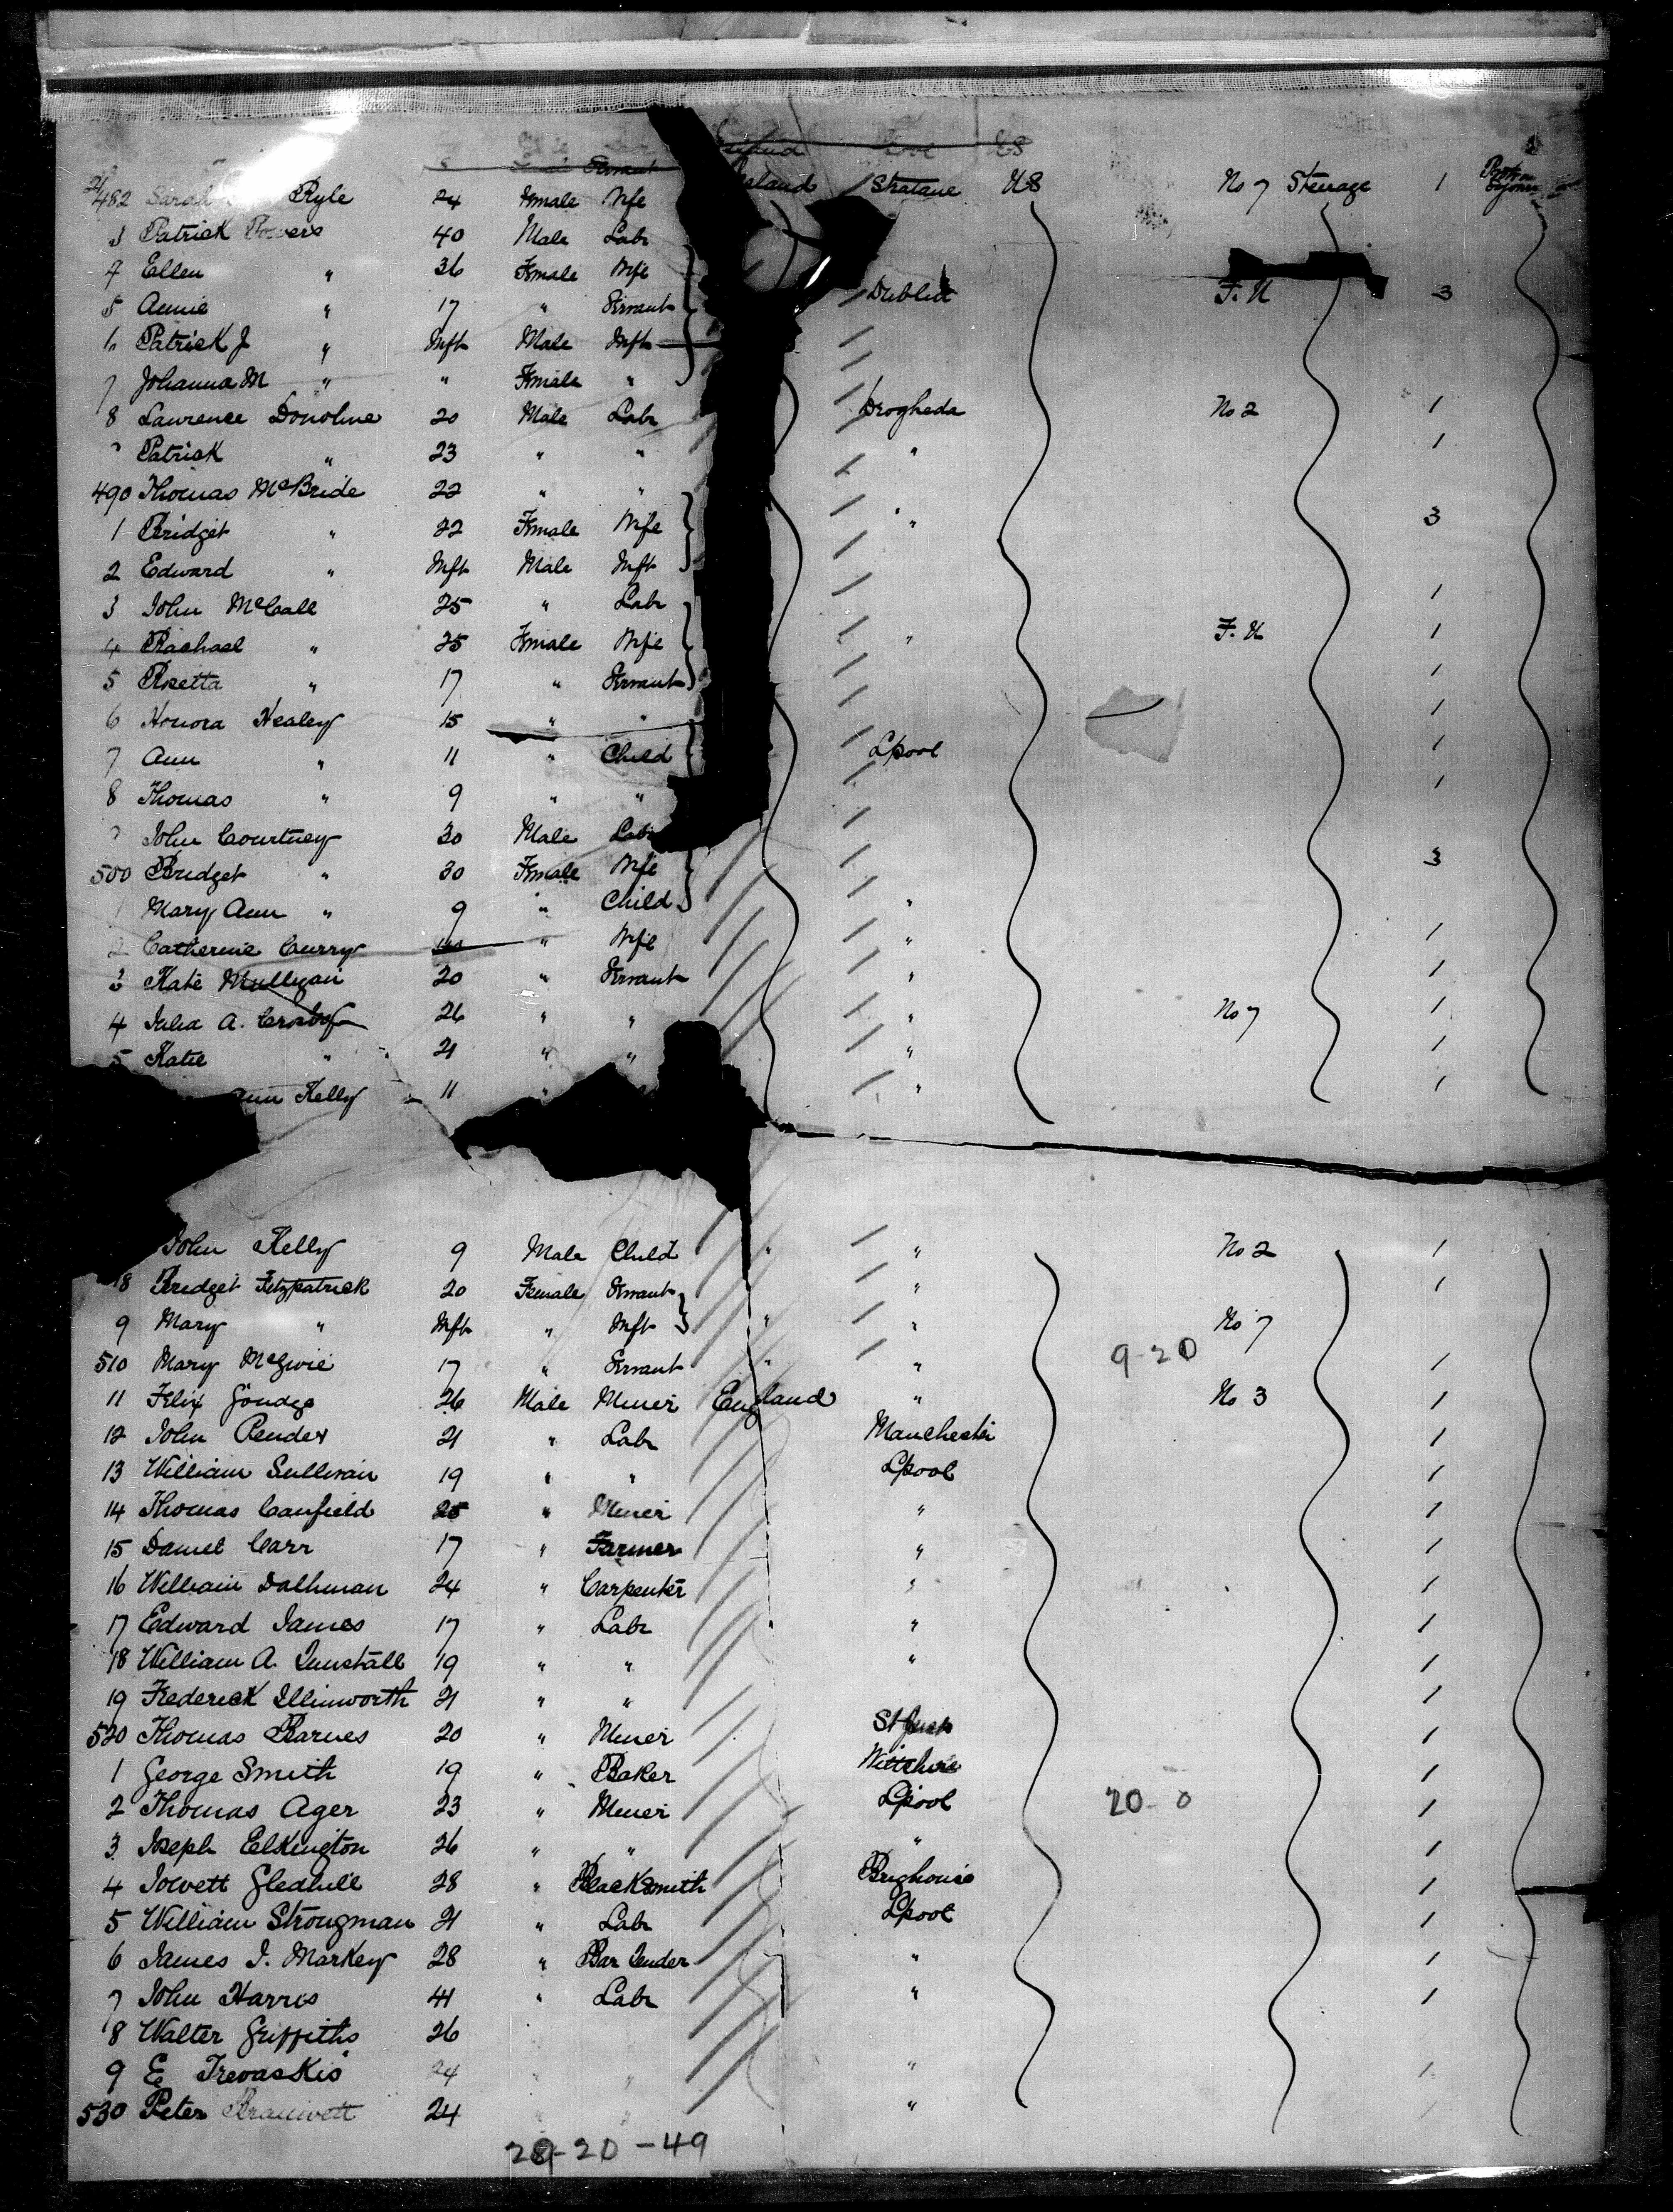 Servant
482 Sarah Ryle 24 Female Wife Ireland Stratane US No 7 Steerage 1
3 Patrick Powers 40 Male Labr
4 Ellen " 36 Female Wife
5 Annie " 17 " Servant Dublin F. U 3
6 Patrick J " Inft Male Inft
7 Johanna M " " Female "
8 Lawrence Donoline 20 Male Labr Drogheda No 2 1
Patrick " 23 " " " 1
490 Thomas McBride 22 " "
1 Bridget " 22 Female Wife " 3
2 Edward " Inft Male Inft
3 John McCall 25 " Labr 1
4 Rachael " 25 Female Wife " F. U 1
5 Rosetta " 17 " Servant 1
6 Honora Healey 15 " " 1
7 Ann " 11 " Child Lpool 1
8 Thomas " 9 " " 1
John Courtney 30 Male Labr
500 Bridget " 30 Female Wife 3
1 Mary Ann " 9 " Child "
2 Catherine Curry " Wife " 1
3 Kate Mulligan 20 " Servant " 1
4 Julia A. Crosby 26 " " " No 7 1
5 Katie " 21 " " " 1
Ann Kelly 11 " " 1
John Kelly 9 Male Child " " No 2 1
8 Bridget Fitzpatrick 20 Female Servant " 1
9 Mary " Inft " Inft " " No 7
510 Mary McGwie 17 " Servant " " 9-20 1
11 Felix Goudge 26 Male Miner England " No 3 1
12 John Pender 21 " Labr Manchester 1
13 William Sullivan 19 " " Lpool 1
14 Thomas Canfield 25 " Miner " 1
15 Daniel Carr 17 " Farmer " 1
16 William Dalhman 24 " Carpenter " 1
17 Edward James 17 " Labr " 1
18 William A. Tunstall 19 " " " 1
19 Frederick Illinworth 21 " " 1
520 Thomas Barnes 20 " Miner St Just 1
1 George Smith 19 " Baker Wiltshire 1
2 Thomas Ager 23 " Miner Lpool 20-0 1
3 Joseph Elkington 26 " " " 1
4 Jowett Gledhill 28 " Blacksmith Brighouse 1
5 William Strongman 21 " Labr Lpool 1
6 James J. Markey 28 " Bar Tender " 1
7 John Harris 41 " Labr " 1
8 Walter Griffiths 26
9 E Trevaskis 24 " " 1
530 Peter 24 "
28-20-49